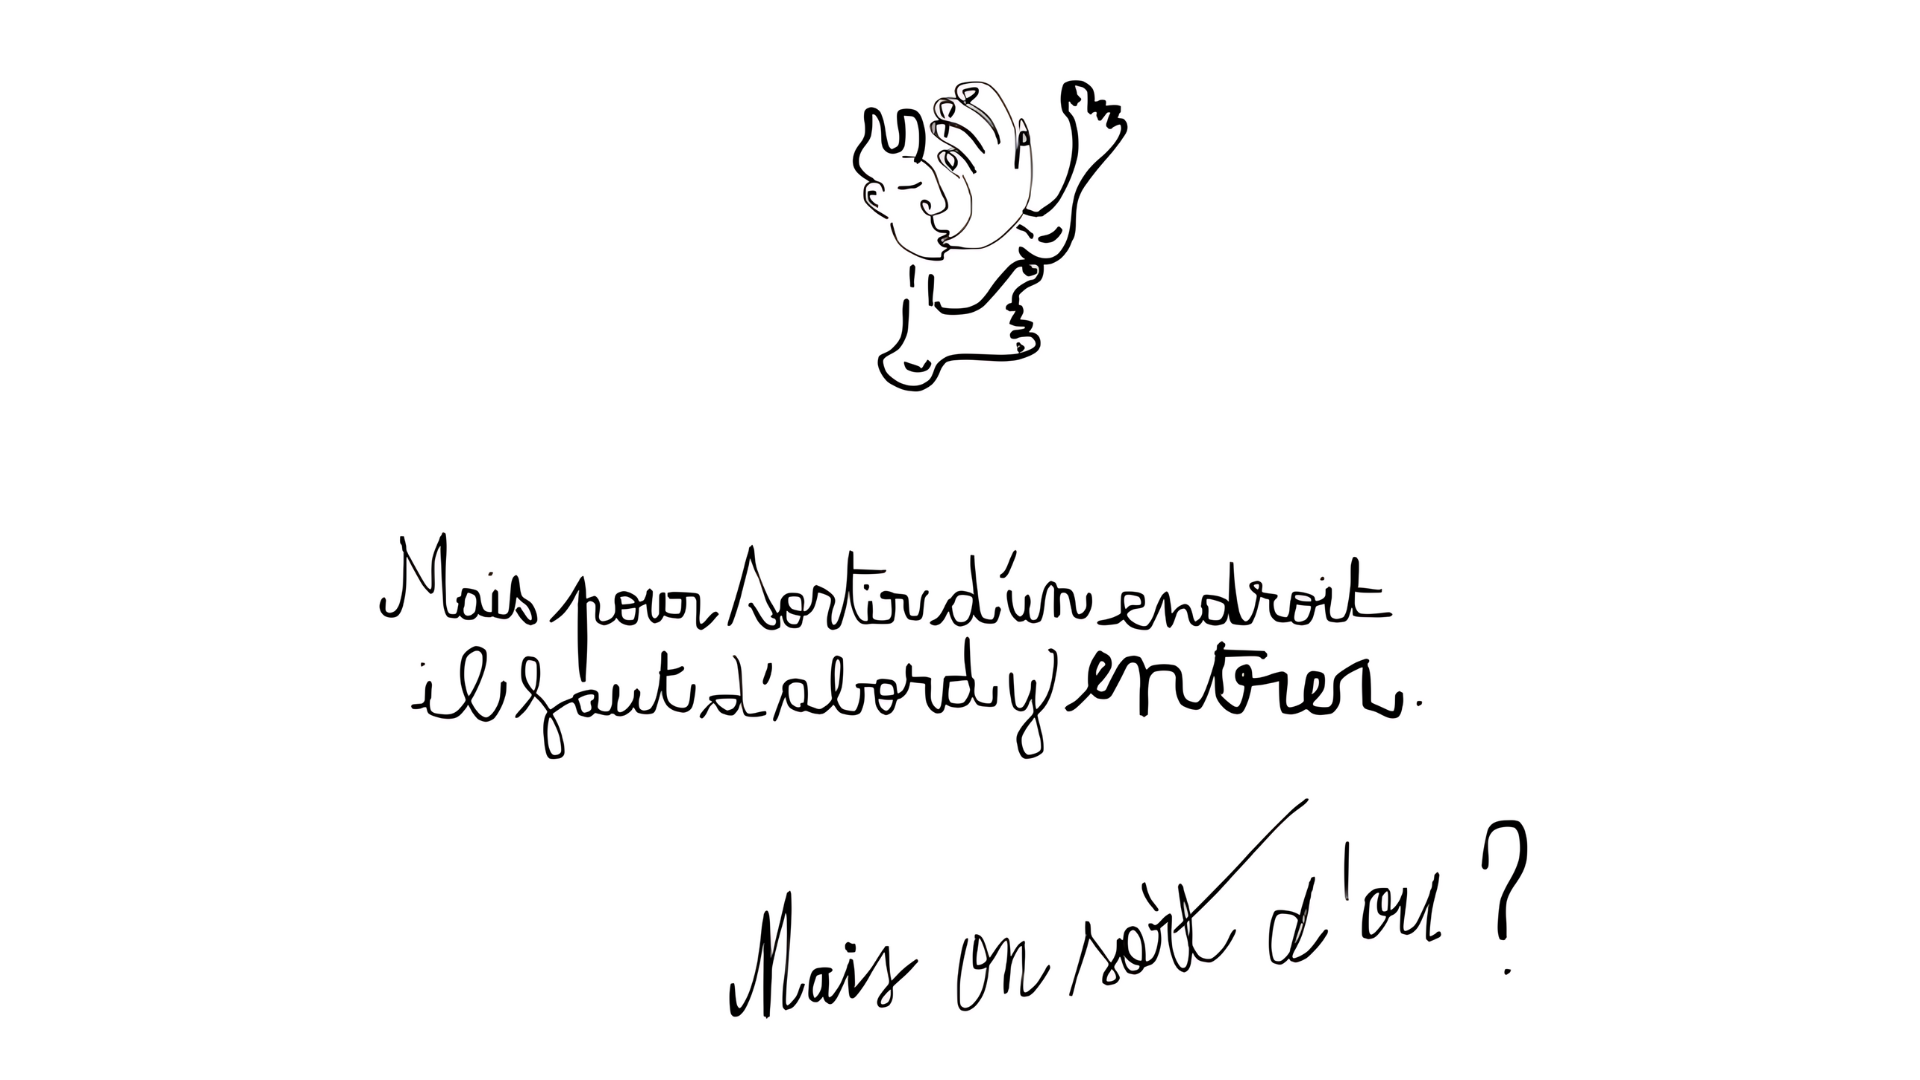 Mais pour sortir d'un endroit
il faut d'abord y entrer.
Mais on sort d'ou ?